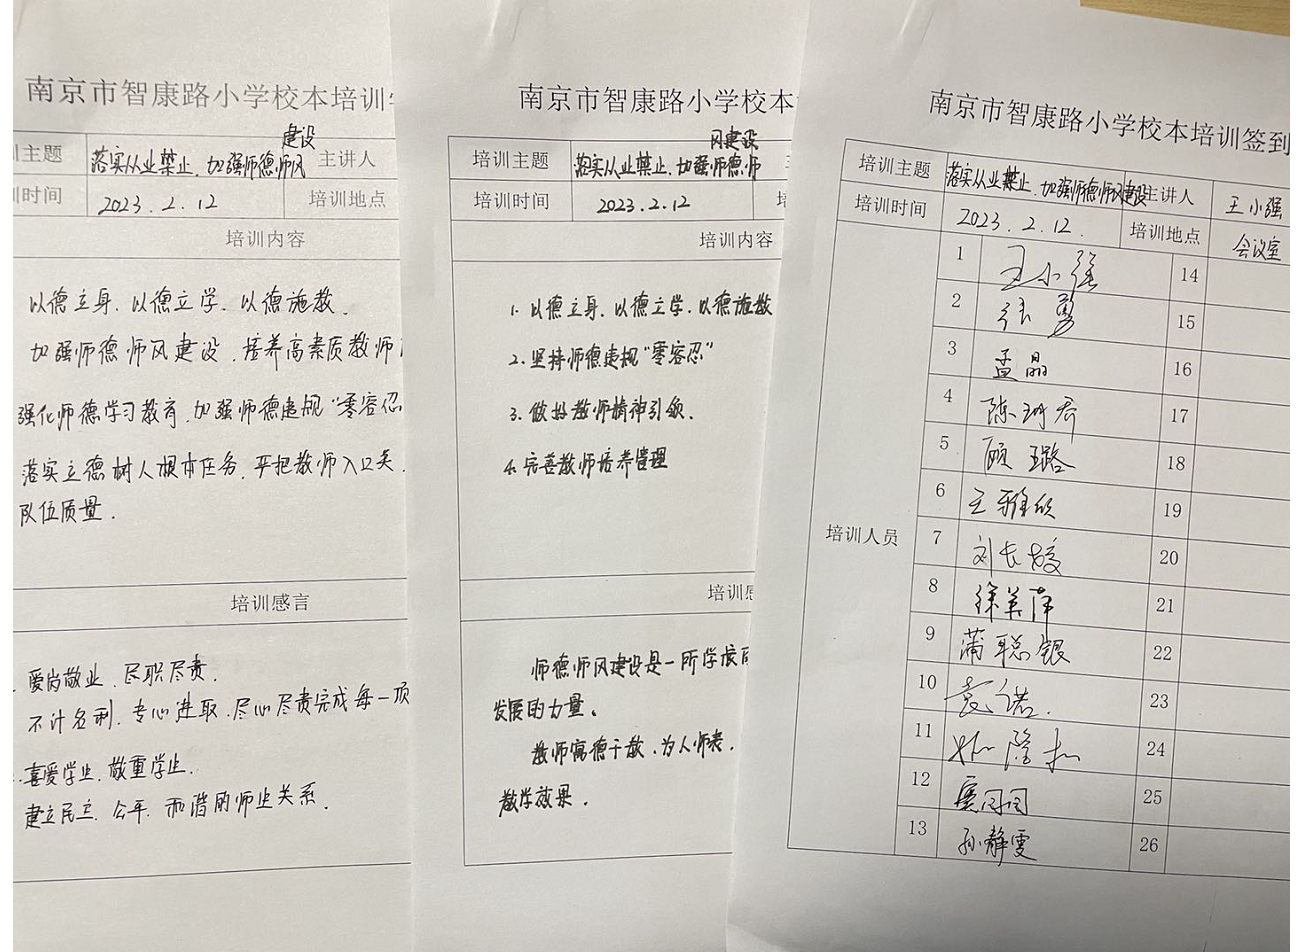 南京市智康路小学校本培训
训主题
落实从业禁止.加强师德师风建设
主讲人
训时间
2023.2.12
培训地点
培训内容
以德立身.以德立学.以德施教.
加强师德师风建设.培养高素质教师
强化师德学习教育.加强师德违规“零容忍
落实立德树人根本任务.严把教师入口关.
队伍质量.
培训感言
爱岗敬业.尽职尽责.
不计名利.专心进取.尽心尽责完成每一项
喜爱学生.敬重学生.
建立民主.公平.和谐的师生关系.
南京市智康路小学校本
培训主题
落实从业禁止.加强师德师风建设
培训时间
2023.2.12
培训内容
1.以德立身.以德立学.以德施教
2.坚持师德违规“零容忍”
3.做好教师精神引领.
4.完善教师培养管理
培训感
师德师风建设是一所学校
发展的力量.
教师寓德于教.为人师表.
教学效果.
南京市智康路小学校本培训签到
培训主题
落实从业禁止.加强师德师风建设
主讲人
王小强
培训时间
2023.2.12.
培训地点
会议室
培训人员
1 王小强 14
2 徐勇 15
3 孟晶 16
4 17
5 顾璐 18
6 王雅欣 19
7 20
8 徐美萍 21
9 蒲聪银 22
10 袁诺. 23
11 24
12 25
13 孙静雯 26